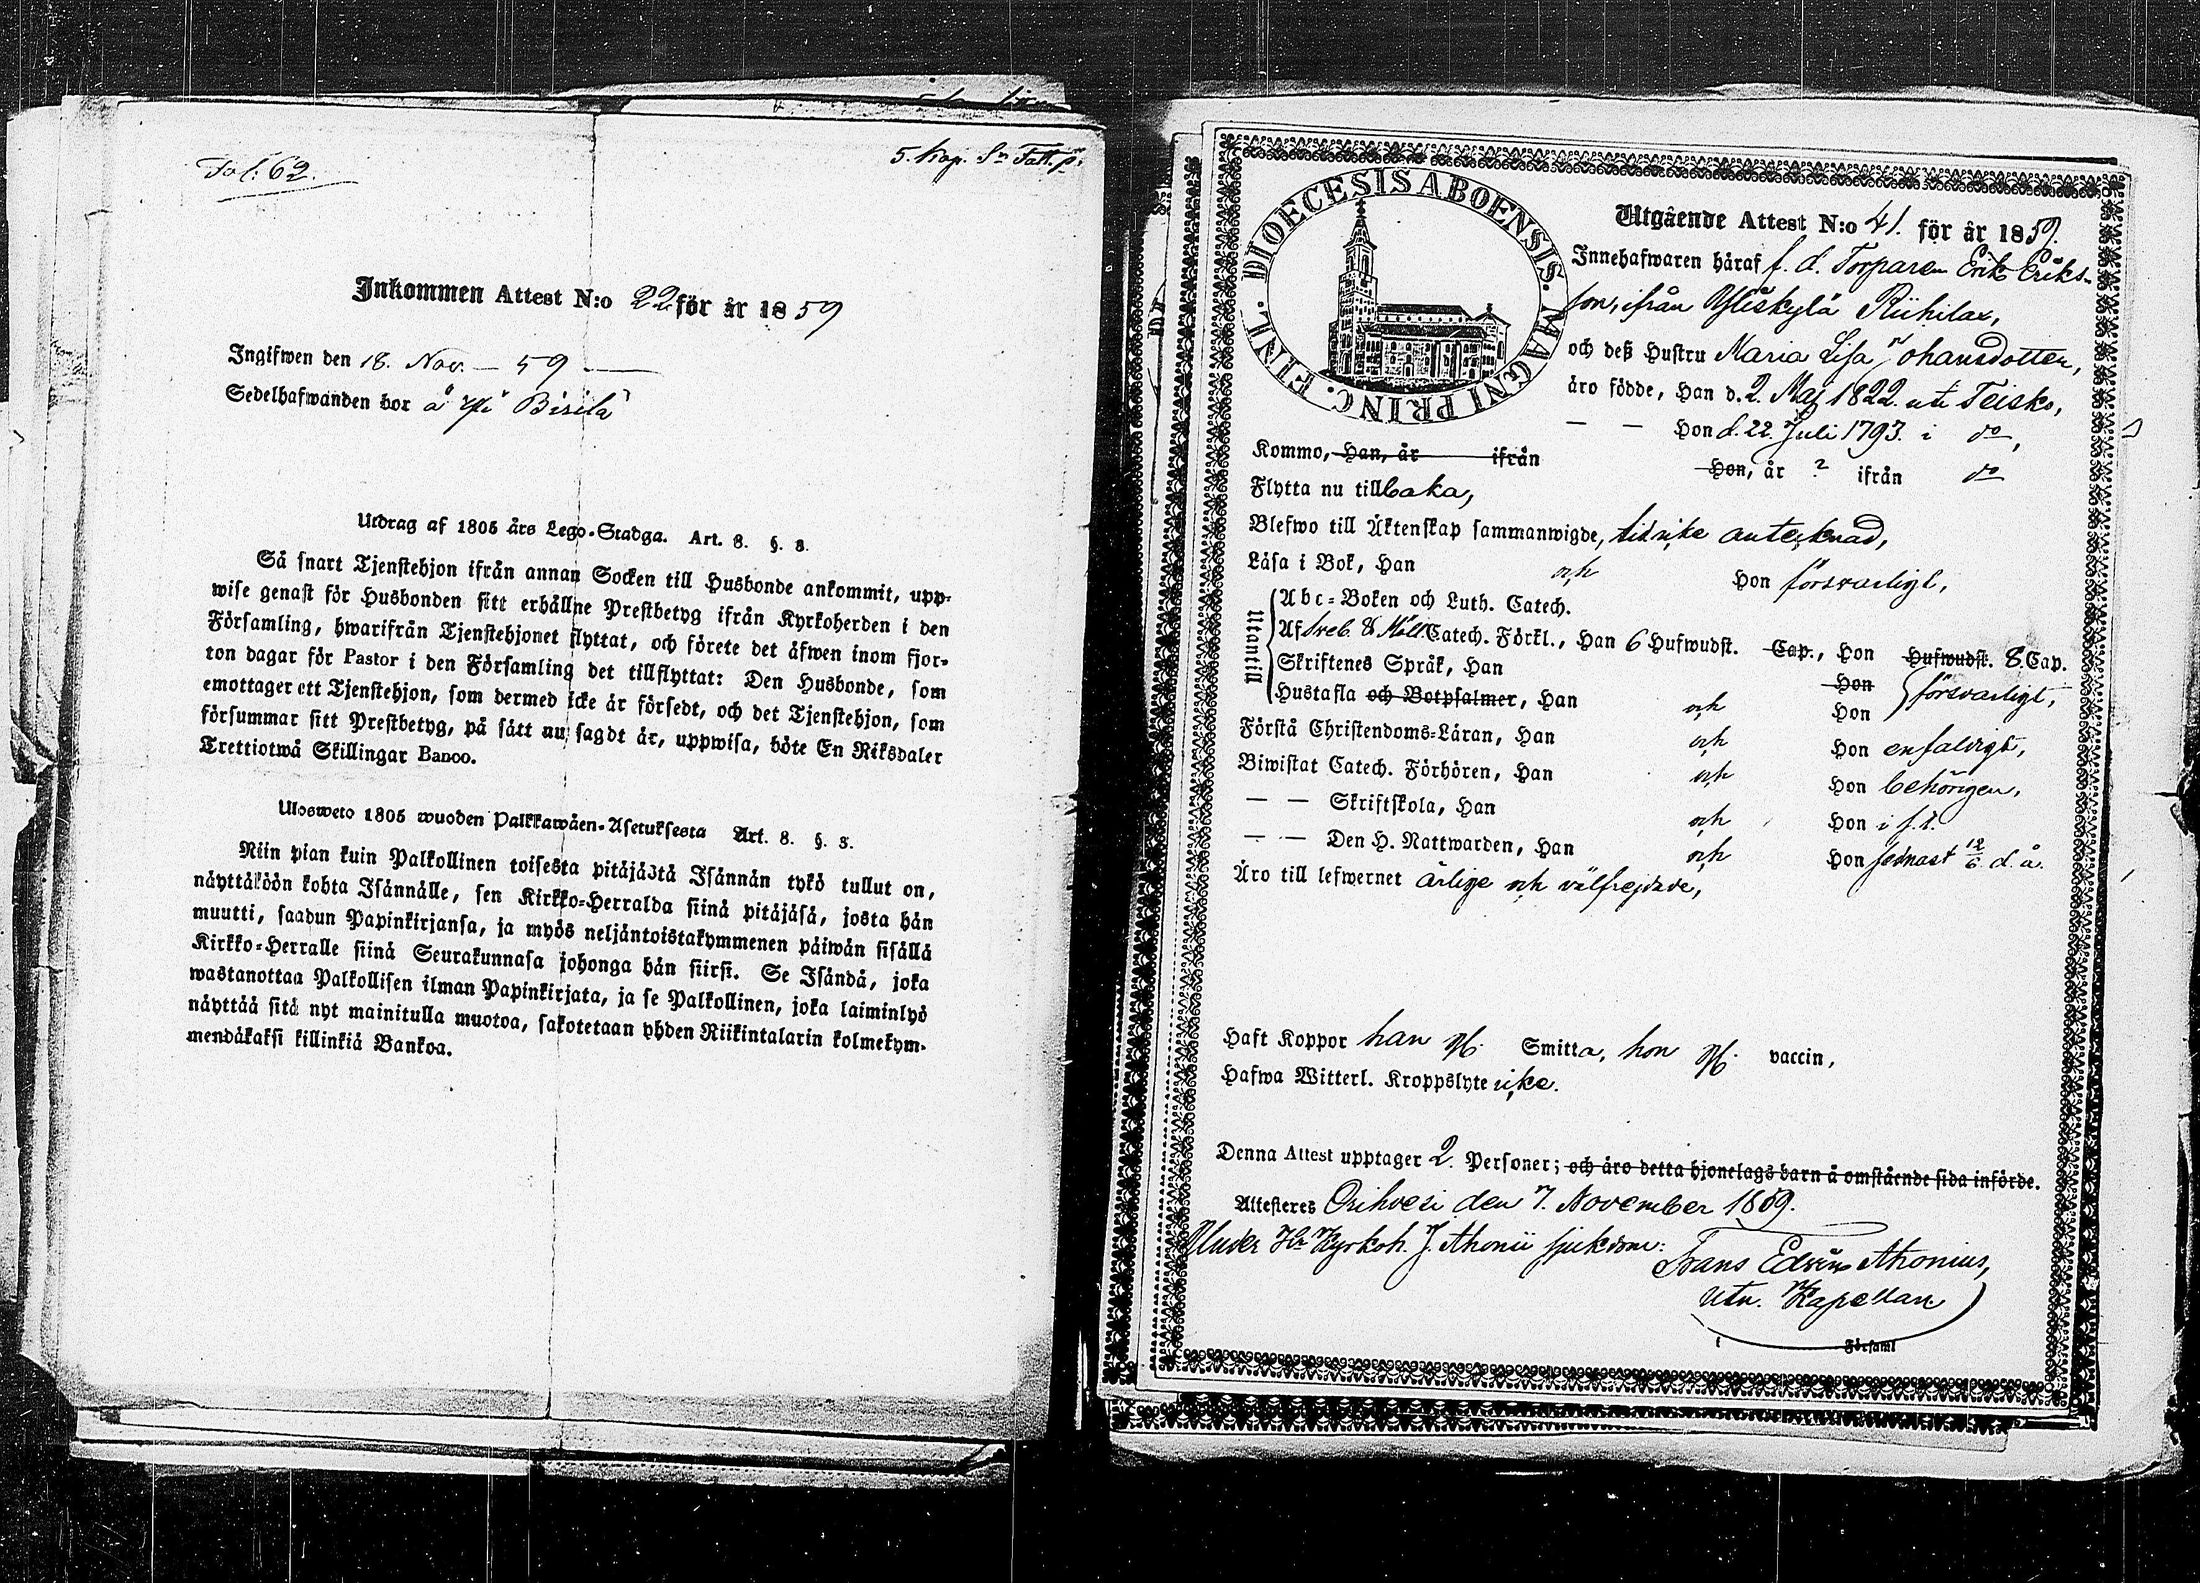 Fol: 62.
5. Kap.
Inkommen Attest N:o 22 för år 1859
Ingifwen den 18. Nov. — 59 —
Sedelhafwanden bor å Bisila
Utdrag af 1805 års Lego-Stadga. Art. 8. §. 3.
Så snart Tjenstehjon ifrån annan Socken till Husbonde ankommit, upp-
wise genast för Husbonden sitt erhållne Prestbetyg ifrån Kyrkoherden i den
Församling, hwarifrån Tjenstehjonet flyttat, och förete det äfwen inom fjor-
ton dagar för Pastor i den Församling det tillflyttat: Den Husbonde, som
emottager ett Tjenstehjon, som dermed icke är försedt, och det Tjenstehjon, som
försummar sitt Prestbetyg, på sätt nu sagdt är, uppwisa, böte En Riksdaler
Trettiotwå Skillingar Banco.
Ulosweto 1805 wuoden Palkkawäen-Asetuksesta Art. 8. §. 3.
Niin pian kuin Palkollinen toisesta pitäjästä Isännän tykö tullut on,
näyttäköön kohta Isännälle, sen Kirkko-Herralda siinä pitäjäsä, josta hän
muutti, saadun Papinkirjansa, ja myös neljäntoistakymmenen päiwän sisällä
Kirkko-Herralle siinä Seurakunnasa johonga hän siirsi. Se Isändä, joka
wastanottaa Palkollisen ilman Papinkirjata, ja se Palkollinen, joka laiminlyö
näyttää sitä nyt mainitulla muotoa, sakotetaan yhden Riikintalarin kolmekym-
mendäkaksi killinkiä Bankoa.
DIOECESIS ABOENSIS. MAGNI PRINC. FINL.
Utgående Attest N:o 41. för år 1859.
Innehafwaren häraf f. d. Torparen Erik Eriks-
son, ifrån Yliskylä Riihilax,
och deß Hustru Maria Lisa Johansdotter,
äro födde, Han d. 2. Maj 1822. uti Teisko,
— — Hon d. 22. Juli 1793. i do,
Kommo, Han, år ifrån Hon, år ? ifrån do
Flytta nu tillbaka,
Blefwo till Äktenskap sammanwigde, tid icke antecknad,
Läsa i Bok, Han och Hon försvarligt,
Utantill
Abc-Boken och Luth. Catech.
Af Sveb. & Möll. Catech. Förkl., Han 6 Hufwudst. Cap., Hon Hufwudst. 8. Cap.
Skriftenes Språk, Han Hon
Hustafla och Botpsalmer, Han och Hon försvarligt,
Förstå Christendoms-Läran, Han och Hon enfaldigt,
Biwistat Catech. Förhören, Han och Hon behörigen,
— — Skriftskola, Han och Hon i s. t.
— — Den H. Nattwarden, Han och Hon sednast 12/6 d. å.
Äro till lefwernet ärlige och välfrejdade,
Haft Koppor han Smitta, hon vaccin,
Hafwa Witterl. Kroppslyte icke.
Denna Attest upptager 2. Personer; och äro detta hjonelags barn å omstående sida införde.
Attesteres Orihvesi den 7. November 1859.
Under Hr Kyrkoh. J. Ahonii sjukdom:
Frans Edvin Ahonius,
Utn. Kapellan
Församl